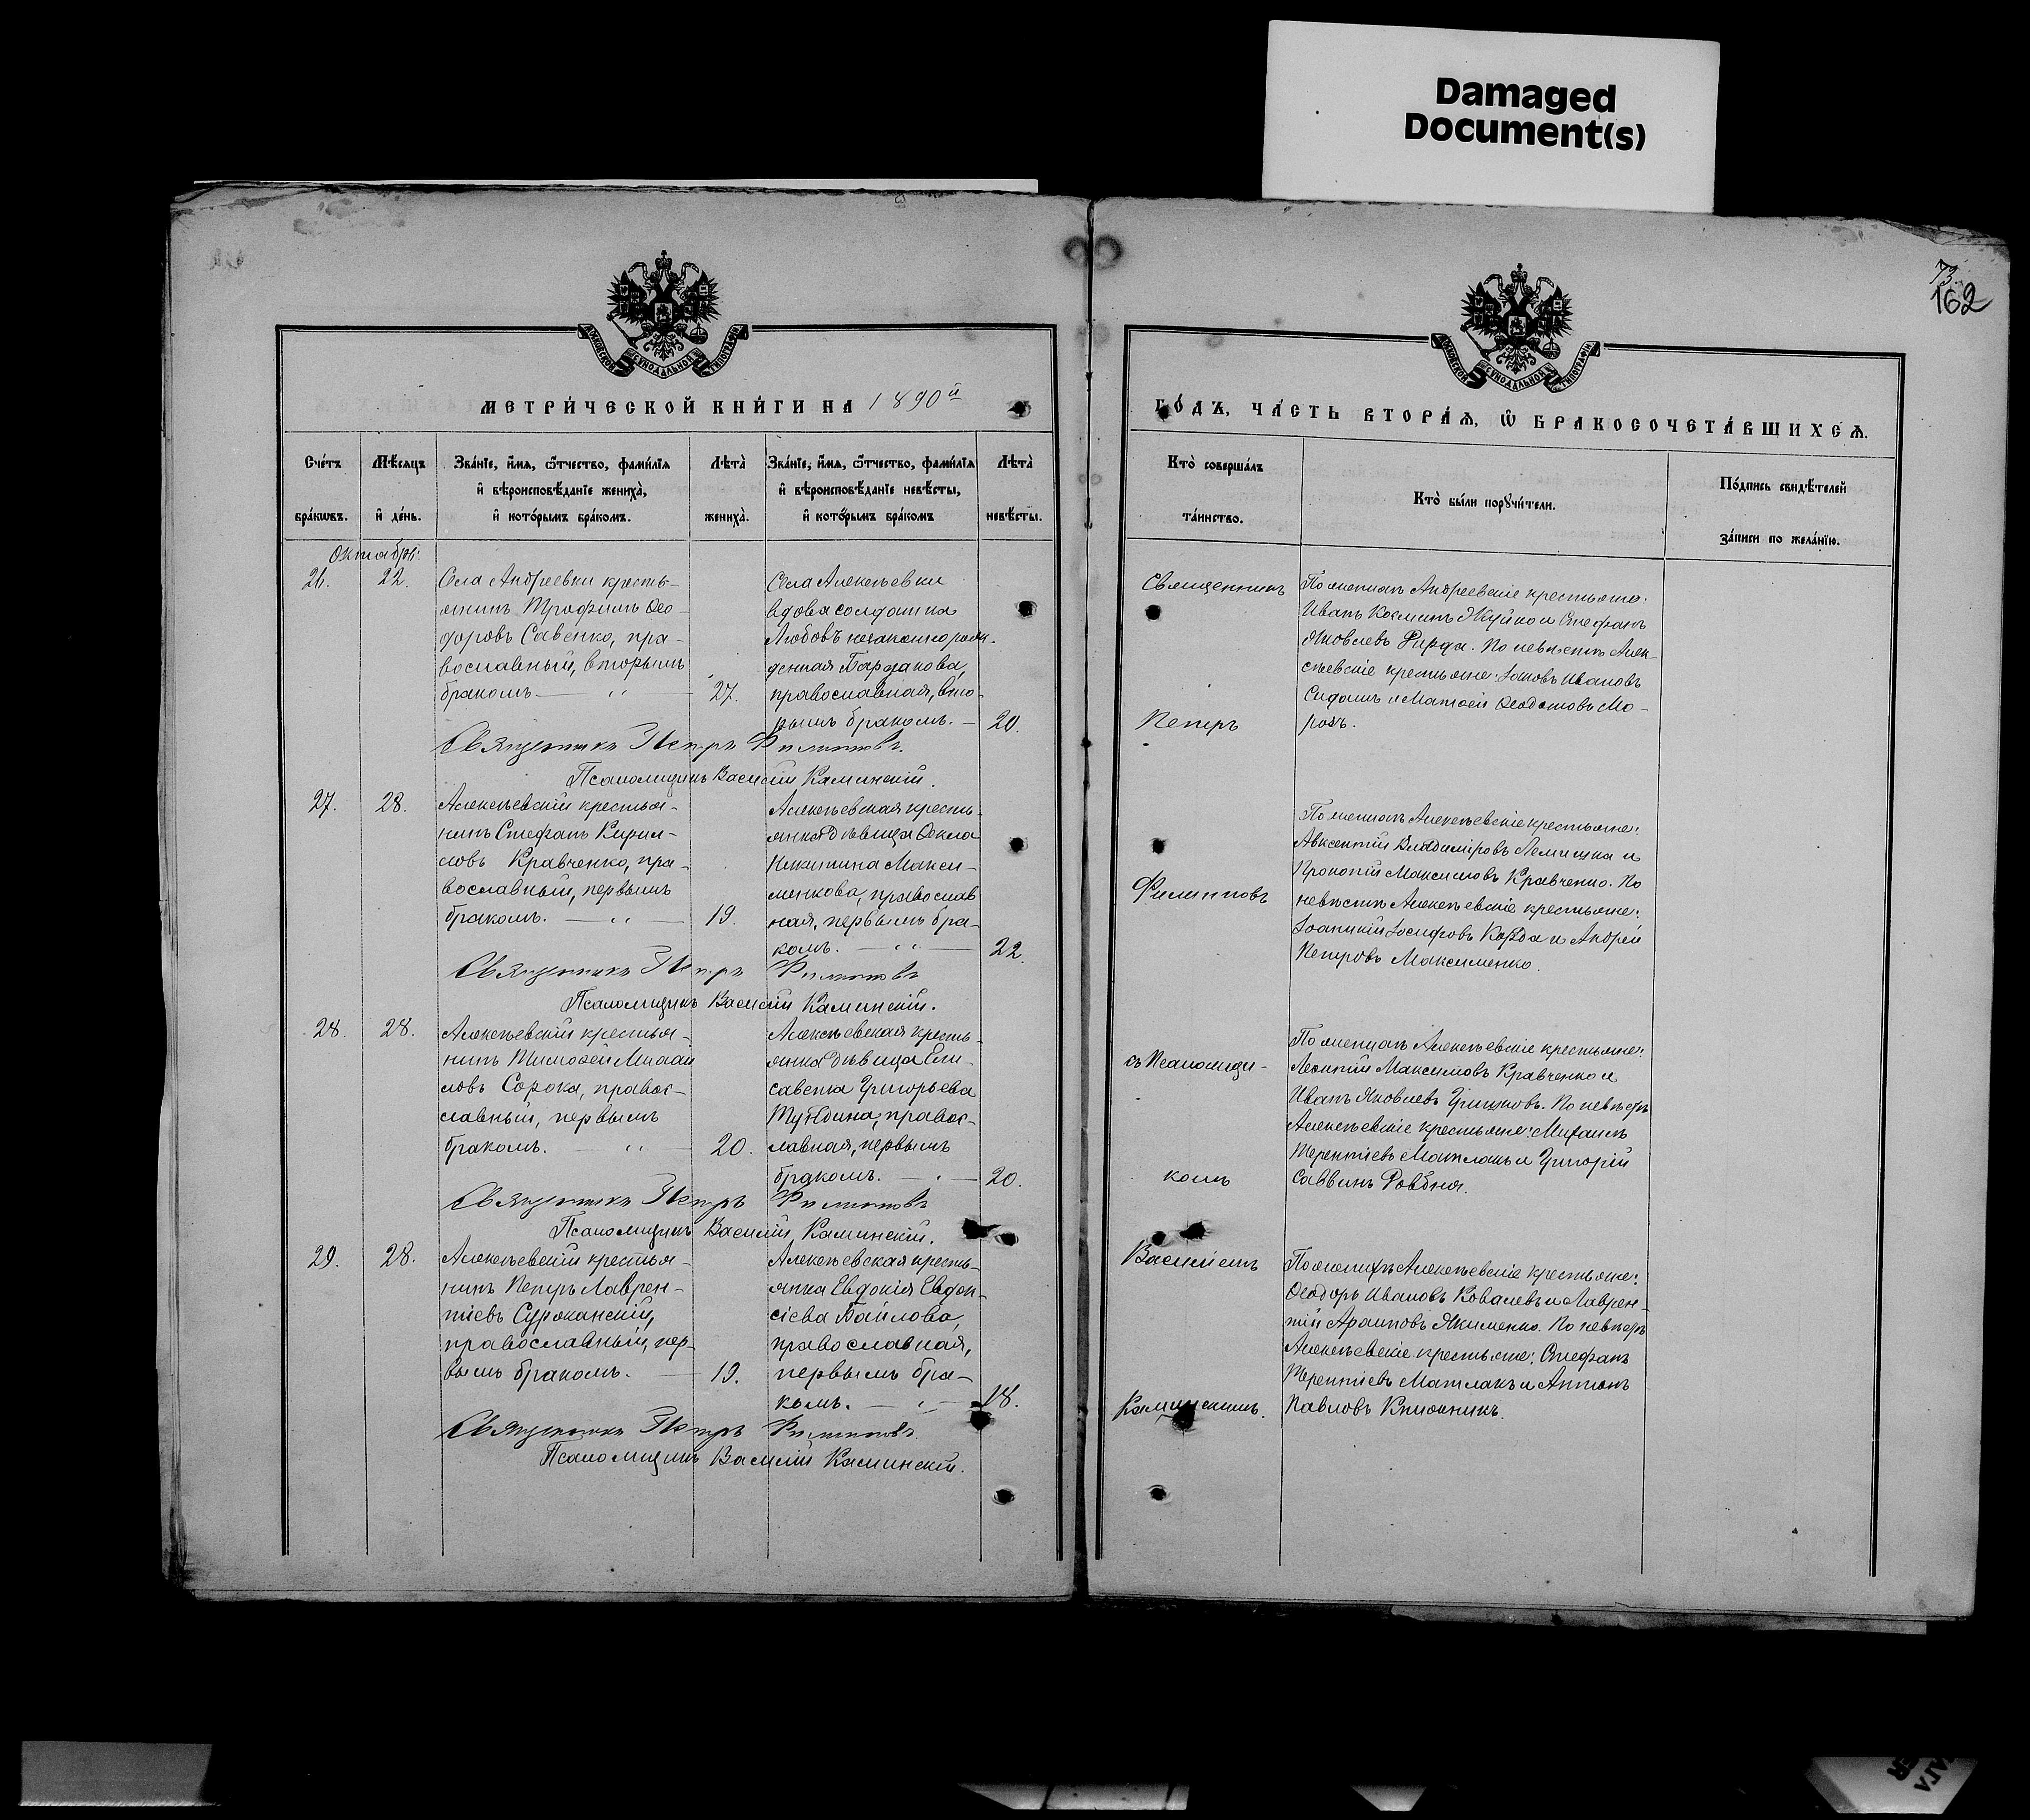 Damaged
Document(s)
73.
162
МОСКОВСКОЙ СѴНОДАЛЬНОЙ ТИПОГРАФІИ
МЕТРИ́ЧЕСКОЙ КНИ́ГИ НА 1890й
Сче́тъ бра́кωвъ.
Мѣ́сяцъ и҆ де́нь.
Зва́нїе, и҆́мя, ѻ҆́тчество, фами́лїя
и҆ вѣроисповѣ́данїе жениха̀,
и҆ кото́рымъ бра́комъ.
Лѣта̀ жениха̀.
Зва́нїе, и҆́мя, ѻ҆́тчество, фами́лїя
и҆ вѣроисповѣ́данїе невѣ́сты,
и҆ кото́рымъ бра́комъ
Лѣта̀ невѣ́сты.
Октабря:
26. 22.
Села Андреевки кресть-
янинъ Трофимъ Ѳео-
доровъ Савенко, пра-
вославный, вторымъ
бракомъ. — „ — 27.
Села Алексѣевки
вдова солдатка
Любовъ незаконнорож-
денная Бардакова,
православная, вто-
рымъ бракомъ. — 20.
Священникъ Петръ Филипповъ.
Псаломщикъ Василій Каминскій.
27. 28.
Алексѣевскій крестья-
нинъ Стефанъ Кирил-
ловъ Кравченко, пра-
вославный, первымъ
бракомъ. — „ — 19.
Алексѣевская кресть-
янка дѣвица Ѳекла
Никитина Макси-
менкова, православ
ная, первымъ бра-
комъ. — „ — 22.
Священникъ Петръ Филипповъ
Псаломщикъ Василій Каминскій.
28. 28.
Алексѣевскій крестья-
нинъ Тимоѳей Михаи
ловъ Сорока, правос-
славный, первымъ
бракомъ. — „ — 20.
Алексѣевская кресть-
янка дѣвица Ели-
савета Григорьева
православ-
лавная, первымъ
бракомъ. — „ — 20.
Священникъ Петръ Филипповъ
Псаломщикъ Василій Каминскій.
29. 28.
Алексѣевскій крестья-
нинъ Петръ Лаврен-
тіевъ Суржанскій,
православный, пер-
вымъ бракомъ. — 19.
Алексѣевская кресть-
янка Евдокія Евдок-
сіева Байлова,
православная,
первымъ бра-
комъ. — „ — 18.
Священникъ Петръ Филипповъ.
Псаломщикъ Василій Каминскій.
МОСКОВСКОЙ СѴНОДАЛЬНОЙ ТИПОГРАФІИ
ГО́ДЪ, ЧА́СТЬ ВТОРА́Я, Ѽ БРАКОСОЧЕТА́ВШИХСЯ.
Кто̀ соверша́лъ
та́инство.
Кто̀ бы́ли порꙋчи́тели.
По́дпись свидѣ́телей
за́писи по жела́нїю.
Священникъ
Петръ
Филипповъ
съ Псаломщи-
комъ
Василіемъ
Каминскимъ.
По женихѣ Андреевскіе крестьяне:
Иванъ Косминъ Жуйко и Стефанъ
Яковлевъ Гирда. По невѣстѣ Алек-
сѣевскіе крестьяне: Іаковъ Ивановъ
Сидашъ и Матѳей Ѳеодотовъ Мо-
розъ.
По женихѣ Алексѣевскіе крестьяне:
Авксентій Владиміровъ Лемишка и
Прокопій Максимовъ Кравченко. По
невѣстѣ Алексѣевскіе крестьяне:
Іоанникій Іосифовъ Коржа и Андрей
Петровъ Максименко.
По женихѣ Алексѣевскіе крестьяне:
Леонтій Максимовъ Кравченко и
Иванъ Яковлевъ Гришковъ. По невѣстѣ
Алексѣевскіе крестьяне: Михаилъ
Терентіевъ Матлакъ и Григорій
Саввинъ Ровбня.
По женихѣ Алексѣевскіе крестьяне:
Ѳеодоръ Ивановъ Ковалевъ и Лаврен-
тій Архиповъ Якименко. По невѣстѣ
Алексѣевскіе крестьяне: Стефанъ
Терентіевъ Матлакъ и Антонъ
Павловъ Книжникъ.